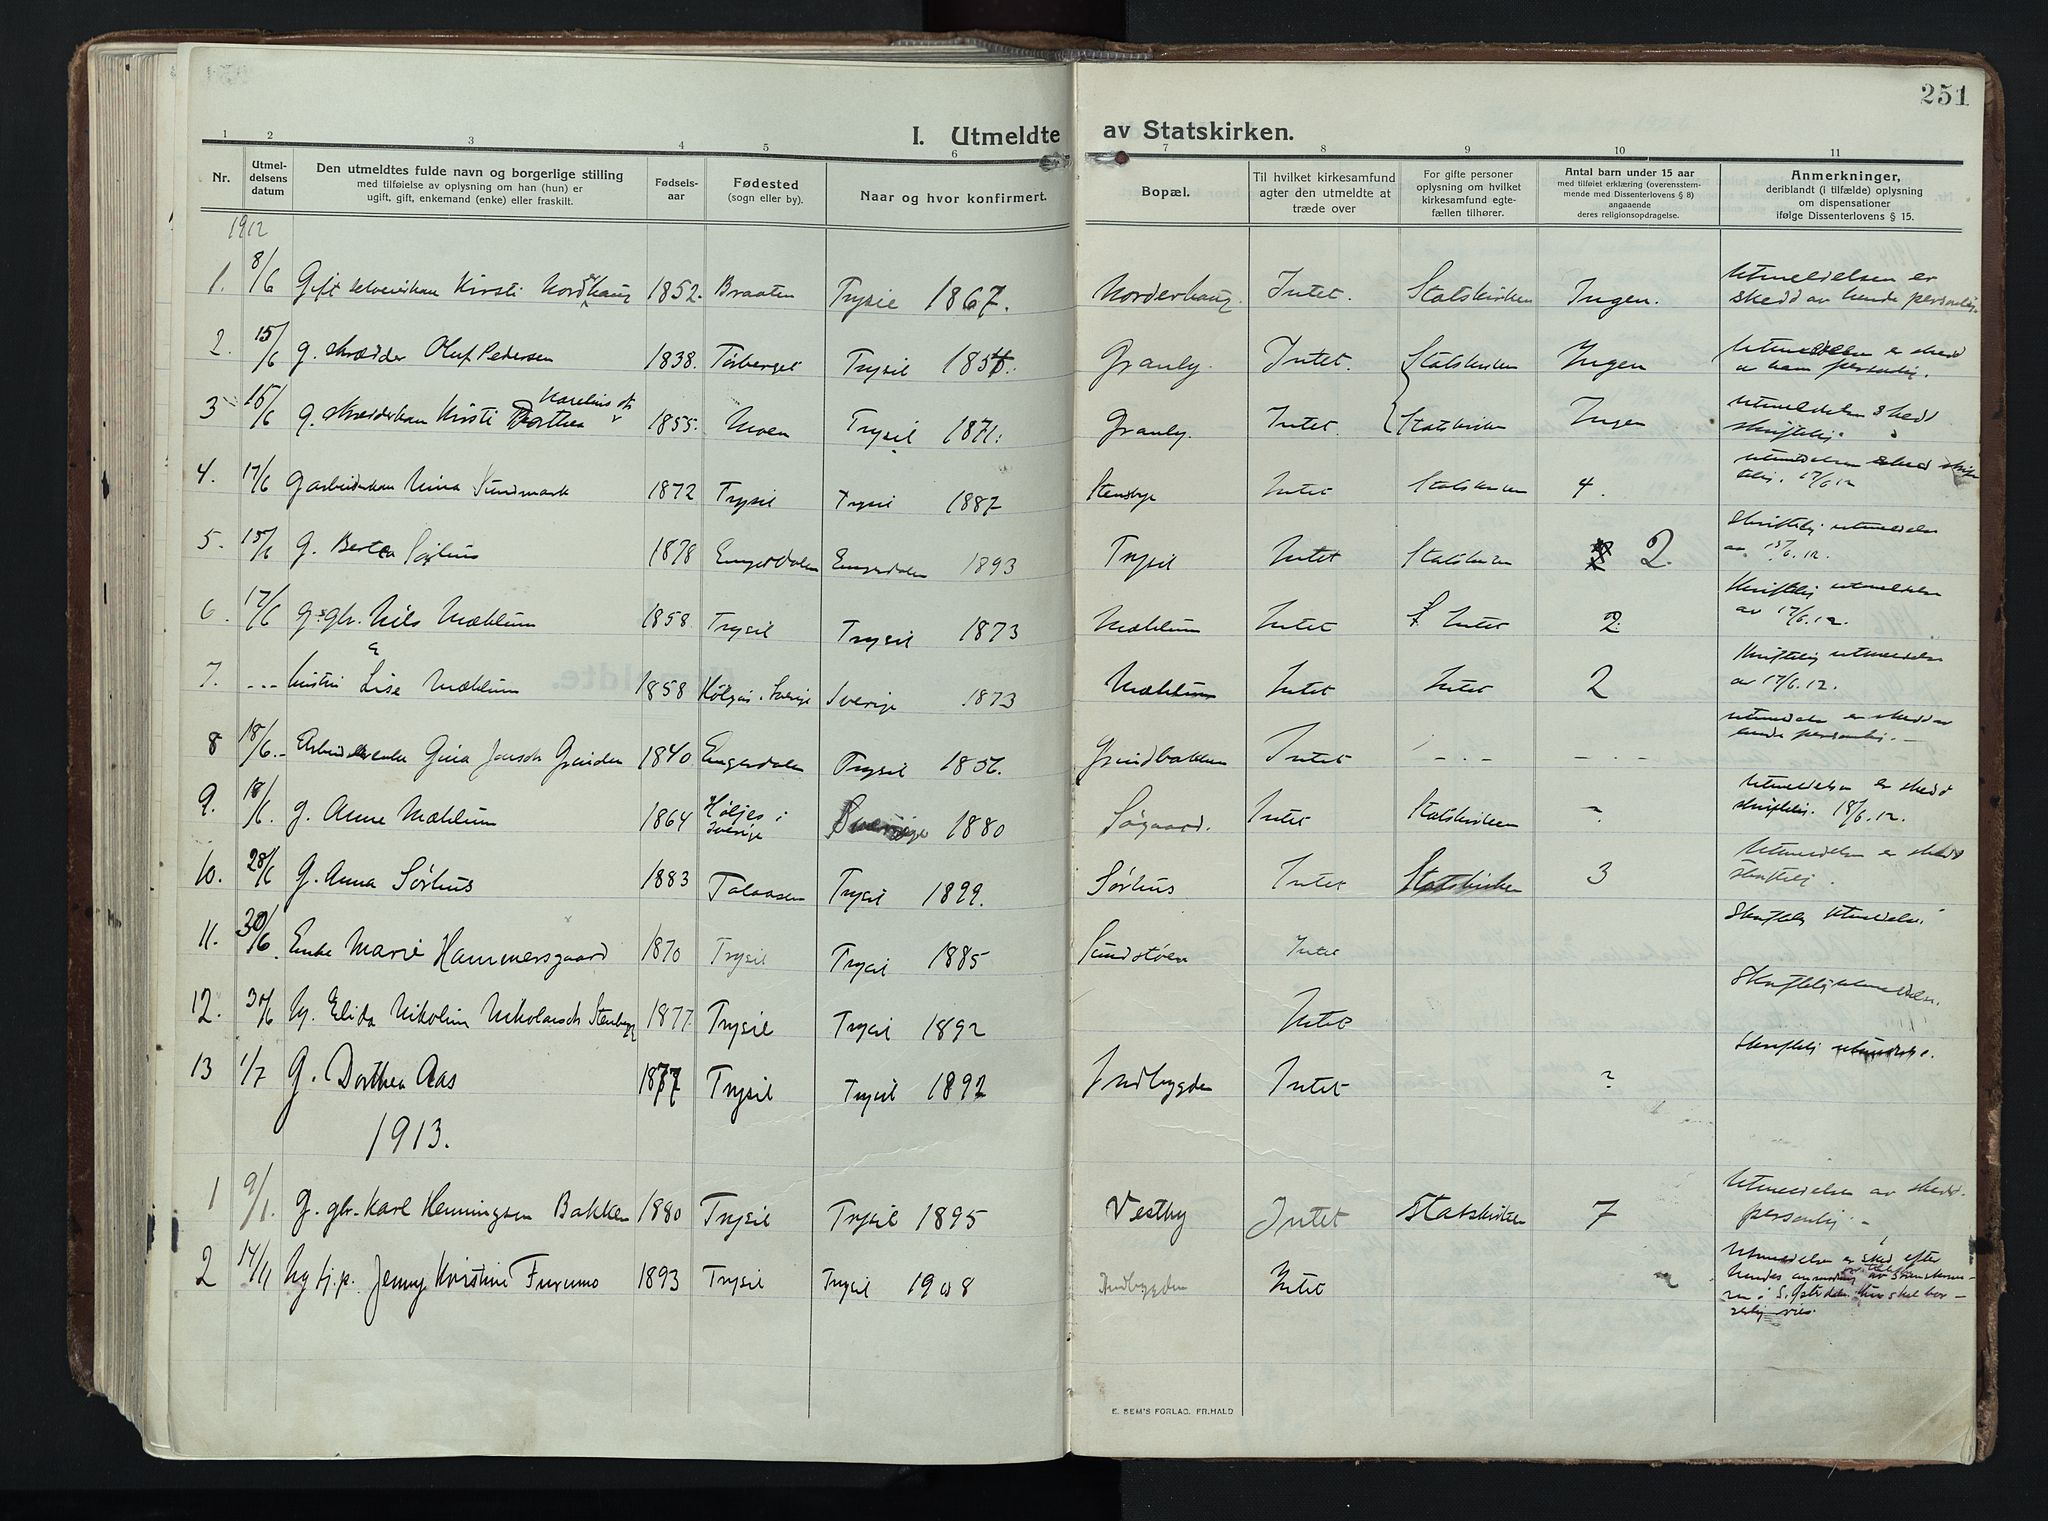 251
I. Utmeldte av Statskirken.
1 2 3 4 5 6 7 8 9 10 11
Nr.
Utmel-
delsens
datum
Den utmeldtes fulde navn og borgerlige stilling
med tilføielse av oplysning om han (hun) er
ugift, gift, enkemand (enke) eller fraskilt.
Fødsels-
aar
Fødested
(sogn eller by).
Naar og hvor konfirmert.
Bopæl.
Til hvilket kirkesamfund
agter den utmeldte at
træde over
For gifte personer
oplysning om hvilket
kirkesamfund egte-
fællen tilhører.
Antal barn under 15 aar
med tilføiet erklæring (overensstem-
mende med Dissenterlovens § 8)
angaaende
deres religionsopdragelse.
Anmerkninger,
deriblandt (i tilfælde) oplysning
om dispensationer
ifølge Dissenterlovens § 15.
1912
1. 8/6 Gift Kirsti Nordhaug 1852. Braaten Trysil 1867. Norderhaug. Intet. Statskirken Ingen. Utmeldelsen er
skedd av hende personlig.
2. 15/6 g. skrædder Oluf Pedersen 1838. Tørberget Trysil Granly. Intet. Statskirken Ingen Utmeldelsen er skedd
av ham personlig.
3 15/6 g. Kirsti Dorthea 1855. Moen Trysil 1871. Granly. Intet. Statskirken Ingen utmeldelsen skedd
skriftelig.
4. 17/6 g arbeiderkone Nina Sundmark 1872 Trysil Trysil 1887 Stensbye Intet Statskirken 4. utmeldelsen sked skrif-
telig. 17/6.12
5. 15/6 g. Berta 1878 Engerdalen Engerdalen 1893 Trysil Intet Statskirken 2. Skriftelig utmeldelse
av 15/6.12.
6. 17/6 g. gbr. Nils Mæhlum 1858 Trysil Trysil 1873 Mæhlum Intet Intet 2 Skriftelig utmeldelse
av 17/6.12.
7. - - - hustru Lise Mæhlum 1858 Sverige Sverige 1873 Mæhlum Intet Intet 2 Skriftelig utmeldelse
av 17/6.12.
8 18/6.- Gina Jonsdr Grinden 1840 Engerdalen Trysil 1856. Grindbakken Intet - . - - . - utmeldelse er skedd av
personlig. -
9. 18/6. g. Anne Mæhlum 1864 Høljes i
Sverige 1880 Søgaard. Intet Statskirken ? Utmeldelsen er skedd
skriftelig. 18/6.12.
10. 28/6 G. Anna Sørhus 1883 Talaasen Trysil 1899. Sørhus Intet Statskirken 3 Utmeldelsen er skedd
skriftelig.
11. 30/6. Enke Marie Hammersgaard 1870 Trysil Trysil 1885 Sundstøen Intet Skriftelig Utmeldelse.
12. 30/6 Elida Nikoline Nikolaisdr Stenbye 1877. Trysil Trysil 1892 Intet Skriftelig utmeldelse.
13 1/7 G. Dorthea Aas 1877 Trysil Trysil 1892 Indbygden Intet ? Skriftelig utmeldelse.
1913.
1 9/1. G. gbr. Karl Henningsen Bakken 1880 Trysil Trysil 1895 Vestby Intet Statskirken 7 Utmeldelsen av skedd.
personlig. -
2 14/11 Ug tj.p. Jenny Kristine Furumo 1893 Trysil Trysil 1908 Indbygden Intet Utmeldelse er sked efter
hendes av
E. SEM'S FORLAG. FR.HALD